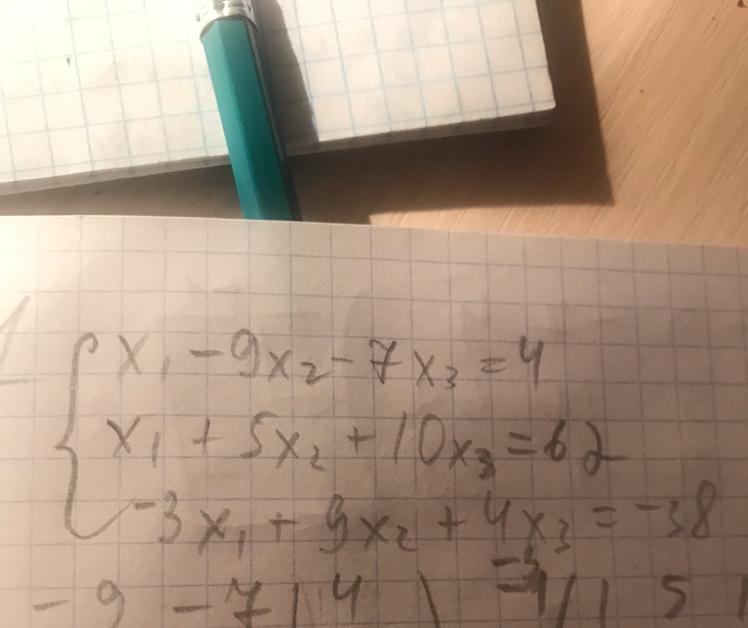 x₁ - 9x₂ - 7x₃ = 4
x₁ + 5x₂ + 10x₃ = 62
-3x₁ + 9x₂ + 4x₃ = -38
-9 -7 | 4